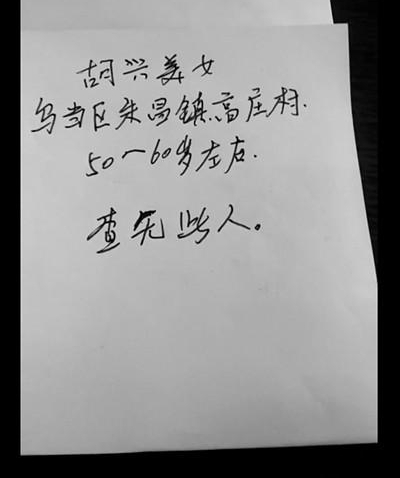 胡兴美女
乌当区朱昌镇高庄村.
50一60岁左右.
查无此人。